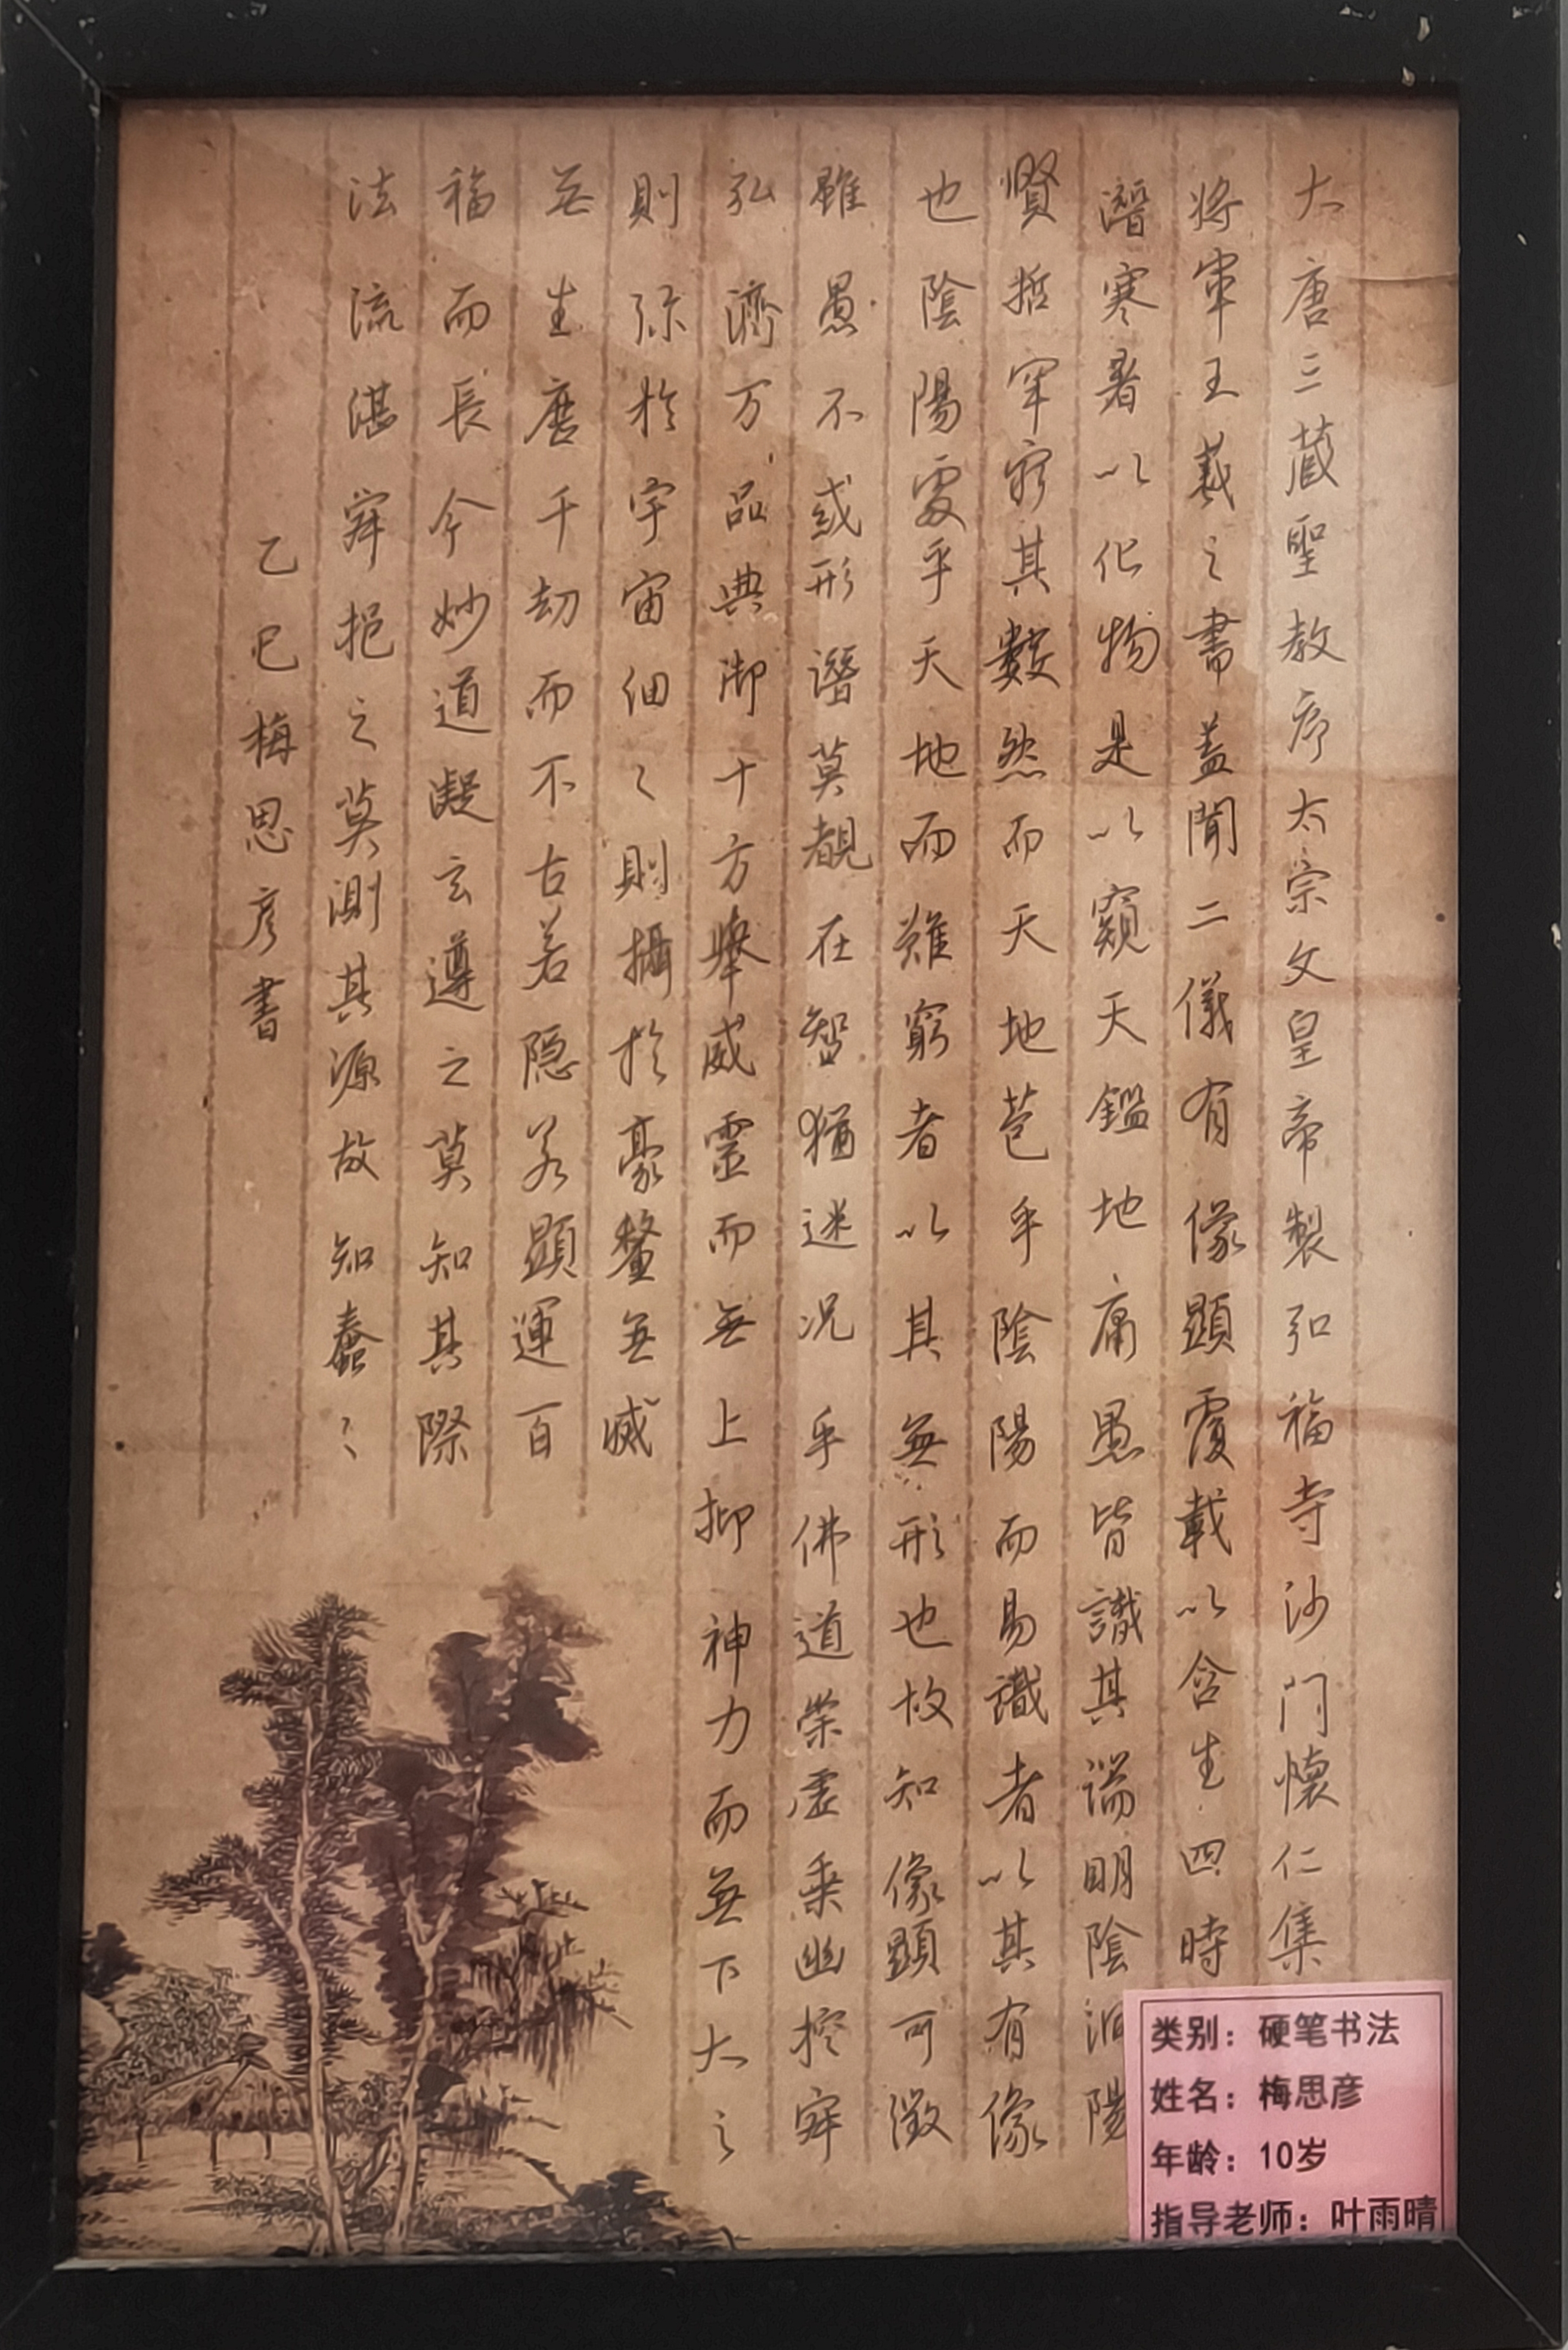 大唐三藏聖教序太宗文皇帝製弘福寺沙門懷仁集
將軍王羲之書蓋聞二儀有像顯覆載以含生四時
潛寒暑以化物是以窺天鑑地庸愚皆識其端明陰洞陽
賢哲罕窮其數然而天地苞乎陰陽而易識者以其有像
也陰陽處乎天地而難窮者以其無形也故知像顯可徵
雖愚不或形潛莫覩在智猶迷况乎佛道崇虛乘幽控寂
弘濟万品典御十方舉威靈而無上抑神力而無下大之
則弥於宇宙細之則攝於豪釐無滅
無生歷千劫而不古若隐若顯運百
福而長今妙道凝玄遵之莫知其際
法流湛寂挹之莫測其源故知蠢〻
乙巳梅思彦書
类别：硬笔书法
姓名：梅思彦
年龄：10岁
指导老师：叶雨晴